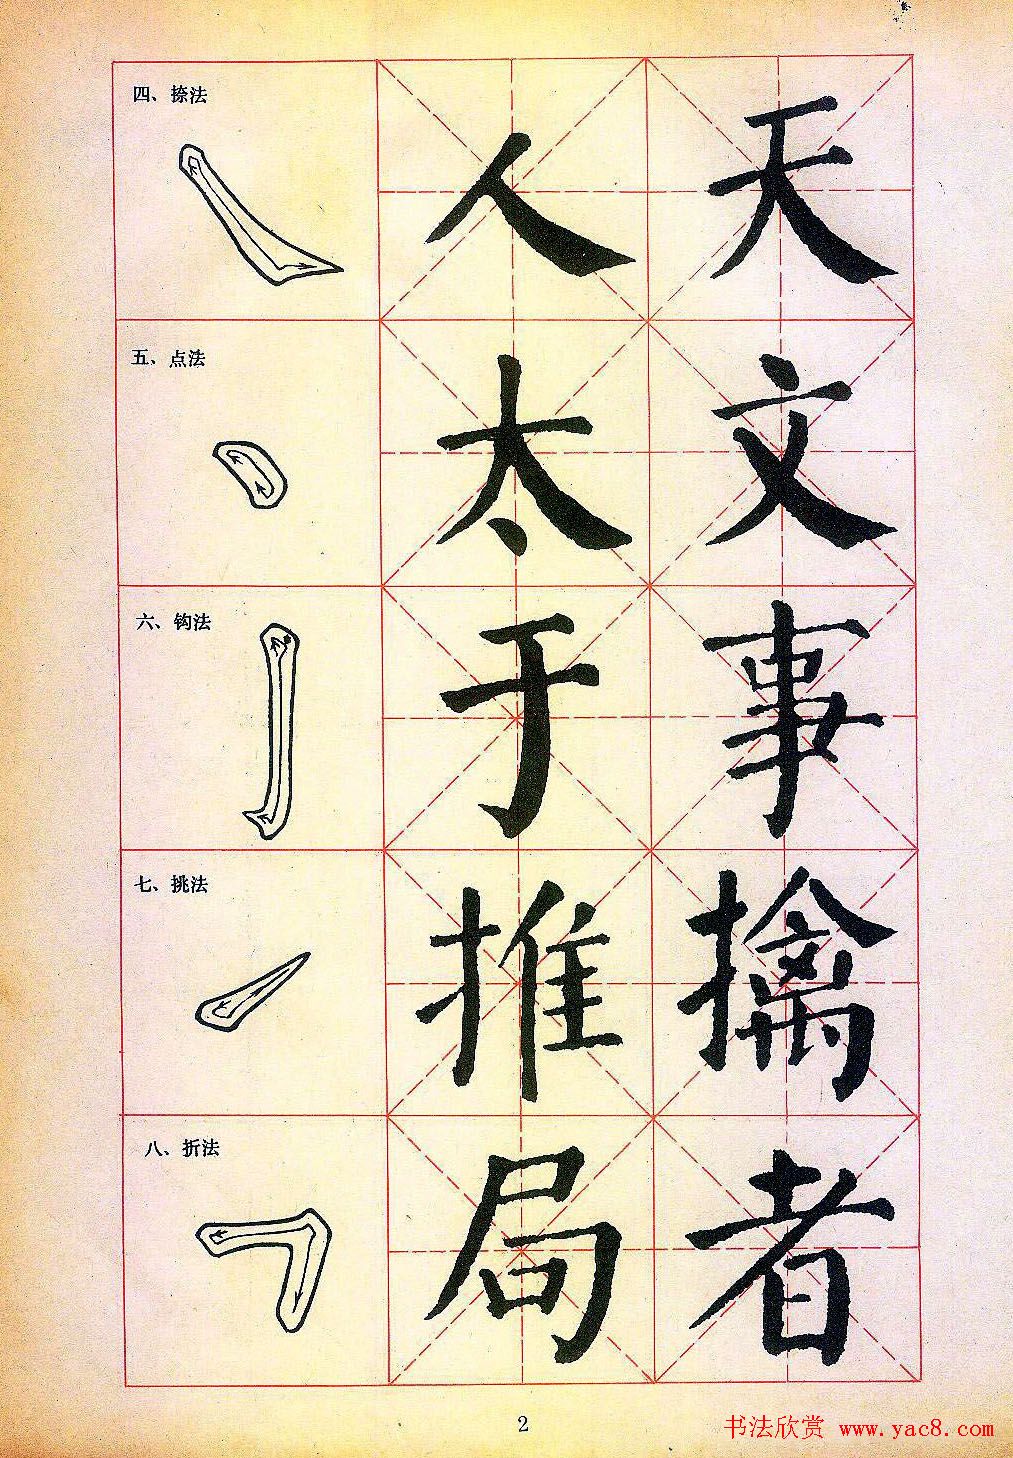 四、捺法
人 天
五、点法
太 文
六、钩法
于 事
七、挑法
推 擒
八、折法
局 者
2
书法欣赏 www.yac8.com